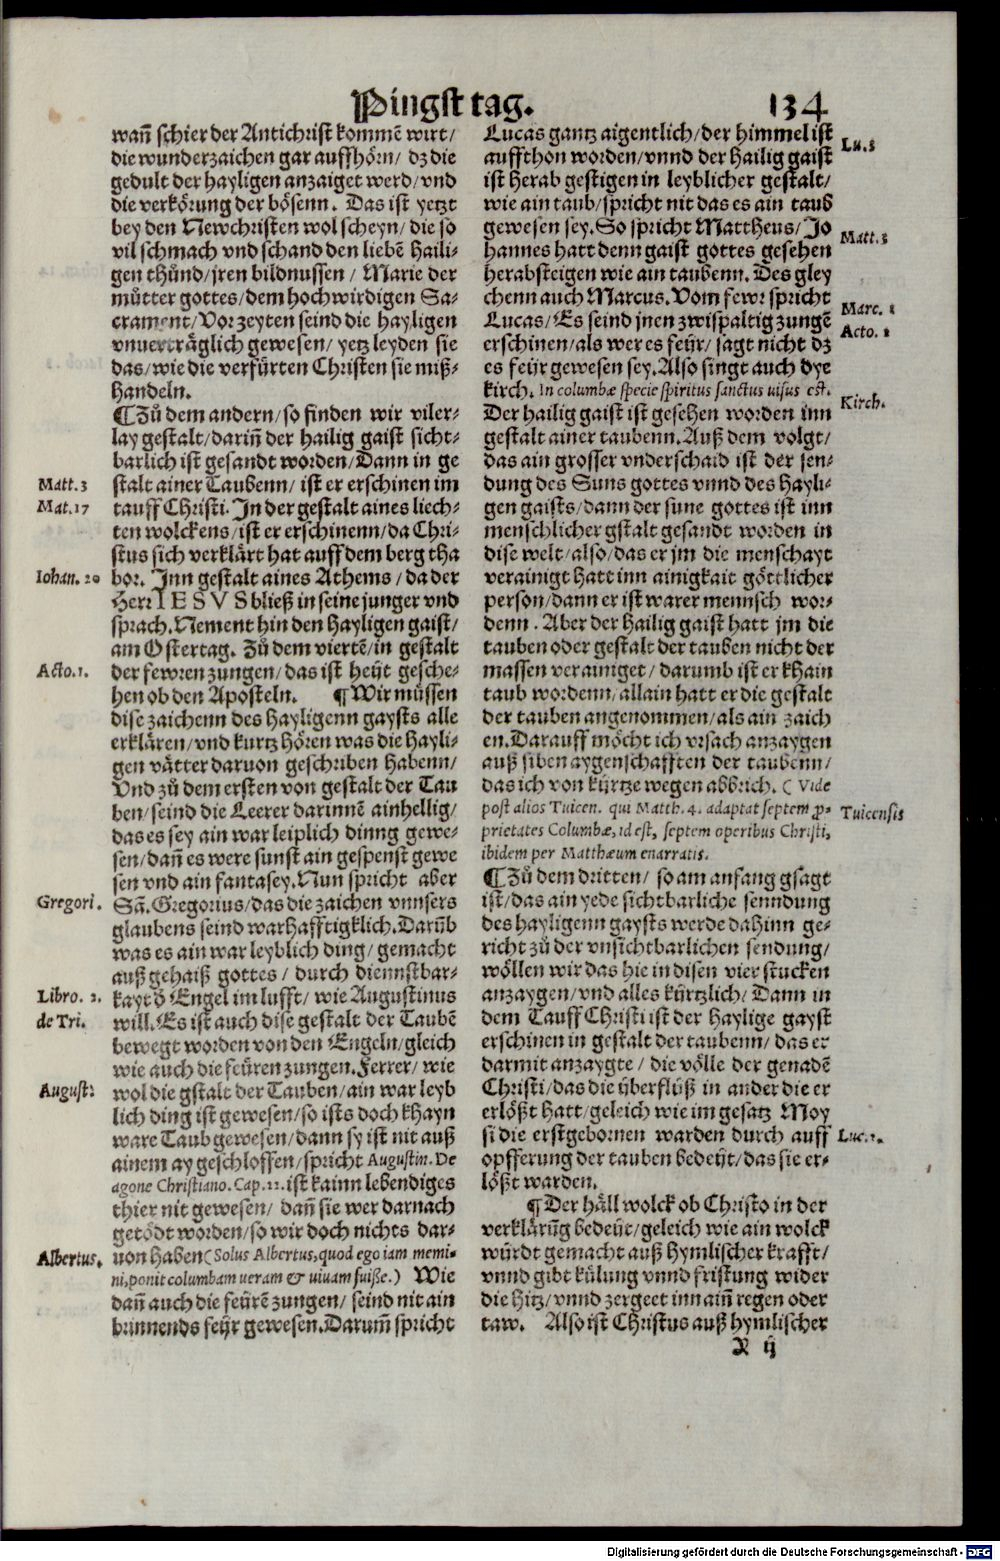 Pingst tag. 134
wañ schier der Antichrist kommẽ wirt/
die wunderzaichen gar auffhörn/ dz die
gedult der hayligen anzaiget werd/vnd
die verkörung der bösenn. Das ist yetzt
bey den Newchristen wol scheyn/die so
vil schmach vnd schand den liebẽ Haili-
gen thůnd/jren bildnussen / Marie der
můtter gottes/dem hochwirdigen Sa-
crament/Vor zeyten seind die hayligen
vnuerträglich gewesen/yetz leyden sie
das/wie die verfürten Christen sie miß-
handeln.
¶Zů dem andern/so finden wir viler-
lay gestalt/dariñ der hailig gaist sicht-
barlich ist gesandt worden/Dann in ge
Matt.3 stalt ainer Taubenn/ ist er erschinen im
Mat.17 tauff Christi. In der gestalt aines liech-
ten wolckens/ist er erschinenn/da Chri-
stus sich verklärt hat auff dem berg tha
Iohan. 20 bor. Inn gestalt aines Athems / da der
Herr IESVS bließ in seine junger vnd
sprach. Nement hin den Hayligen gaist/
am Ostertag. Zů dem viertẽ/in gestalt
Acto.1. der fewren zungen/das ist heüt gesche-
hen ob den Aposteln. ¶Wir müssen
dise zaichenn des Hayligenn gaysts alle
erklären/vnd kurtz hören was die Hayli-
gen vätter daruon geschriben habenn/
Vnd zů dem ersten von gestalt der Tau
ben/seind die Leerer darinnẽ ainhellig/
das es sey ain war leiplich dinng gewe-
sen/dañ es were sunst ain gespenst gewe
sen vnd ain fantasey. Nun spricht aber
Gregori. Sã. Gregorius/das die zaichen vnnsers
glaubens seind warhafftigklich. Darũb
was es ain war leyblich ding/gemacht
auß gehaiß gottes / durch diennstbar-
Libro. 2. kayt d̃ Engel im lufft/ wie Augustinus
de Tri. will. Es ist auch dise gestalt der Taubẽ
bewegt worden von den Engeln/gleich
wie auch die feüren zungen. Ferrer/ wie
August: wol die gstalt der Tauben/ain war leyb
lich ding ist gewesen/so ists doch khayn
ware Taub gewesen/dann sy ist nit auß
ainem ay geschloffen/spricht Augustin. De
agone Christiano. Cap.22. ist kainn lebendiges
thier nit gewesen/ dañ sie wer darnach
getödt worden/so wir doch nichts dar-
Albertus. uon haben (Solus Albertus, quod ego iam memi-
ni, ponit columbam ueram & uiuam fuiße.) Wie
dañ auch die feürẽ zungen/ seind nit ain
brinnends feür gewesen. Darum̃ spricht
Lucas gantz aigentlich/der himmel ist
Lu.3 auffthon worden/vnnd der Hailig gaist
ist herab gestigen in leyblicher gestalt/
wie ain taub/spricht nit das es ain taub
gewesen sey. So spricht Mattheus/Jo
Matt.3 hannes hatt denn gaist gottes gesehen
herabsteigen wie ain taubenn. Des gley
chenn auch Marcus. Vom fewr spricht
Marc. 1 Lucas/Es seind jnen zwispaltig zungẽ
Acto. 2 erschinen/als wer es feür/ sagt nicht dz
es feür gewesen sey. Also singt auch dye
kirch. In columbæ specie spiritus sanctus uisus est.
Kirch. Der hailig gaist ist gesehen worden inn
gestalt ainer taubenn. Auß dem volgt/
das ain grosser vnderschaid ist der sen-
dung des Suns gottes vnnd des Hayli-
gen gaists/dann der sune gottes ist inn
menschlicher gstalt gesandt worden in
dise welt/also/das er jm die menschayt
verainigt hatt inn ainigkait göttlicher
person/dann er ist warer mennsch wor-
denn. Aber der Hailig gaist hatt jm die
tauben oder gestalt der tauben nicht der
massen verainiget/ darumb ist er khain
taub wordenn/allain hatt er die gestalt
der tauben angenommen/als ain zaich
en. Darauff möcht ich vrsach anzaygen
auß siben aygenschafften der taubenn/
das ich von kürtze wegen abbrich. ( Vide
post alios Tuicen. qui Matth. 4. adaptat septem ꝓ-
Tuicensis prietates Columbæ, id est, septem operibus Christi,
ibidem per Matthæum enarratis.
¶Zů dem dritten/ so am anfang gsagt
ist/das ain yede sichtbarliche senndung
des hayligenn gaysts werde dahinn ge-
richt zů der vnsichtbarlichen sendung/
wöllen wir das hie in disen vier stucken
anzaygen/vnd alles kürtzlich/ Dann in
dem Tauff Christi ist der haylige gayst
erschinen in gestalt der taubenn/das er
darmit anzaygte/ die völle der genadẽ
Christi/das die überflüß in ander die er
erlößt hatt/geleich wie im gesatz Moy
Luc.2. si die erstgebornen warden durch auff
opfferung der tauben bedeüt/das sie er-
lößt warden.
¶Der häll wolck ob Christo in der
verklärũg bedeüt/geleich wie ain wolck
würdt gemacht auß hymlischer krafft/
vnnd gibt külung vnnd fristung wider
die hitz/vnnd zergeet inn aiñ regen oder
taw. Also ist Christus auß hymlischer
X ij
Digitalisierung gefördert durch die Deutsche Forschungsgemeinschaft - DFG